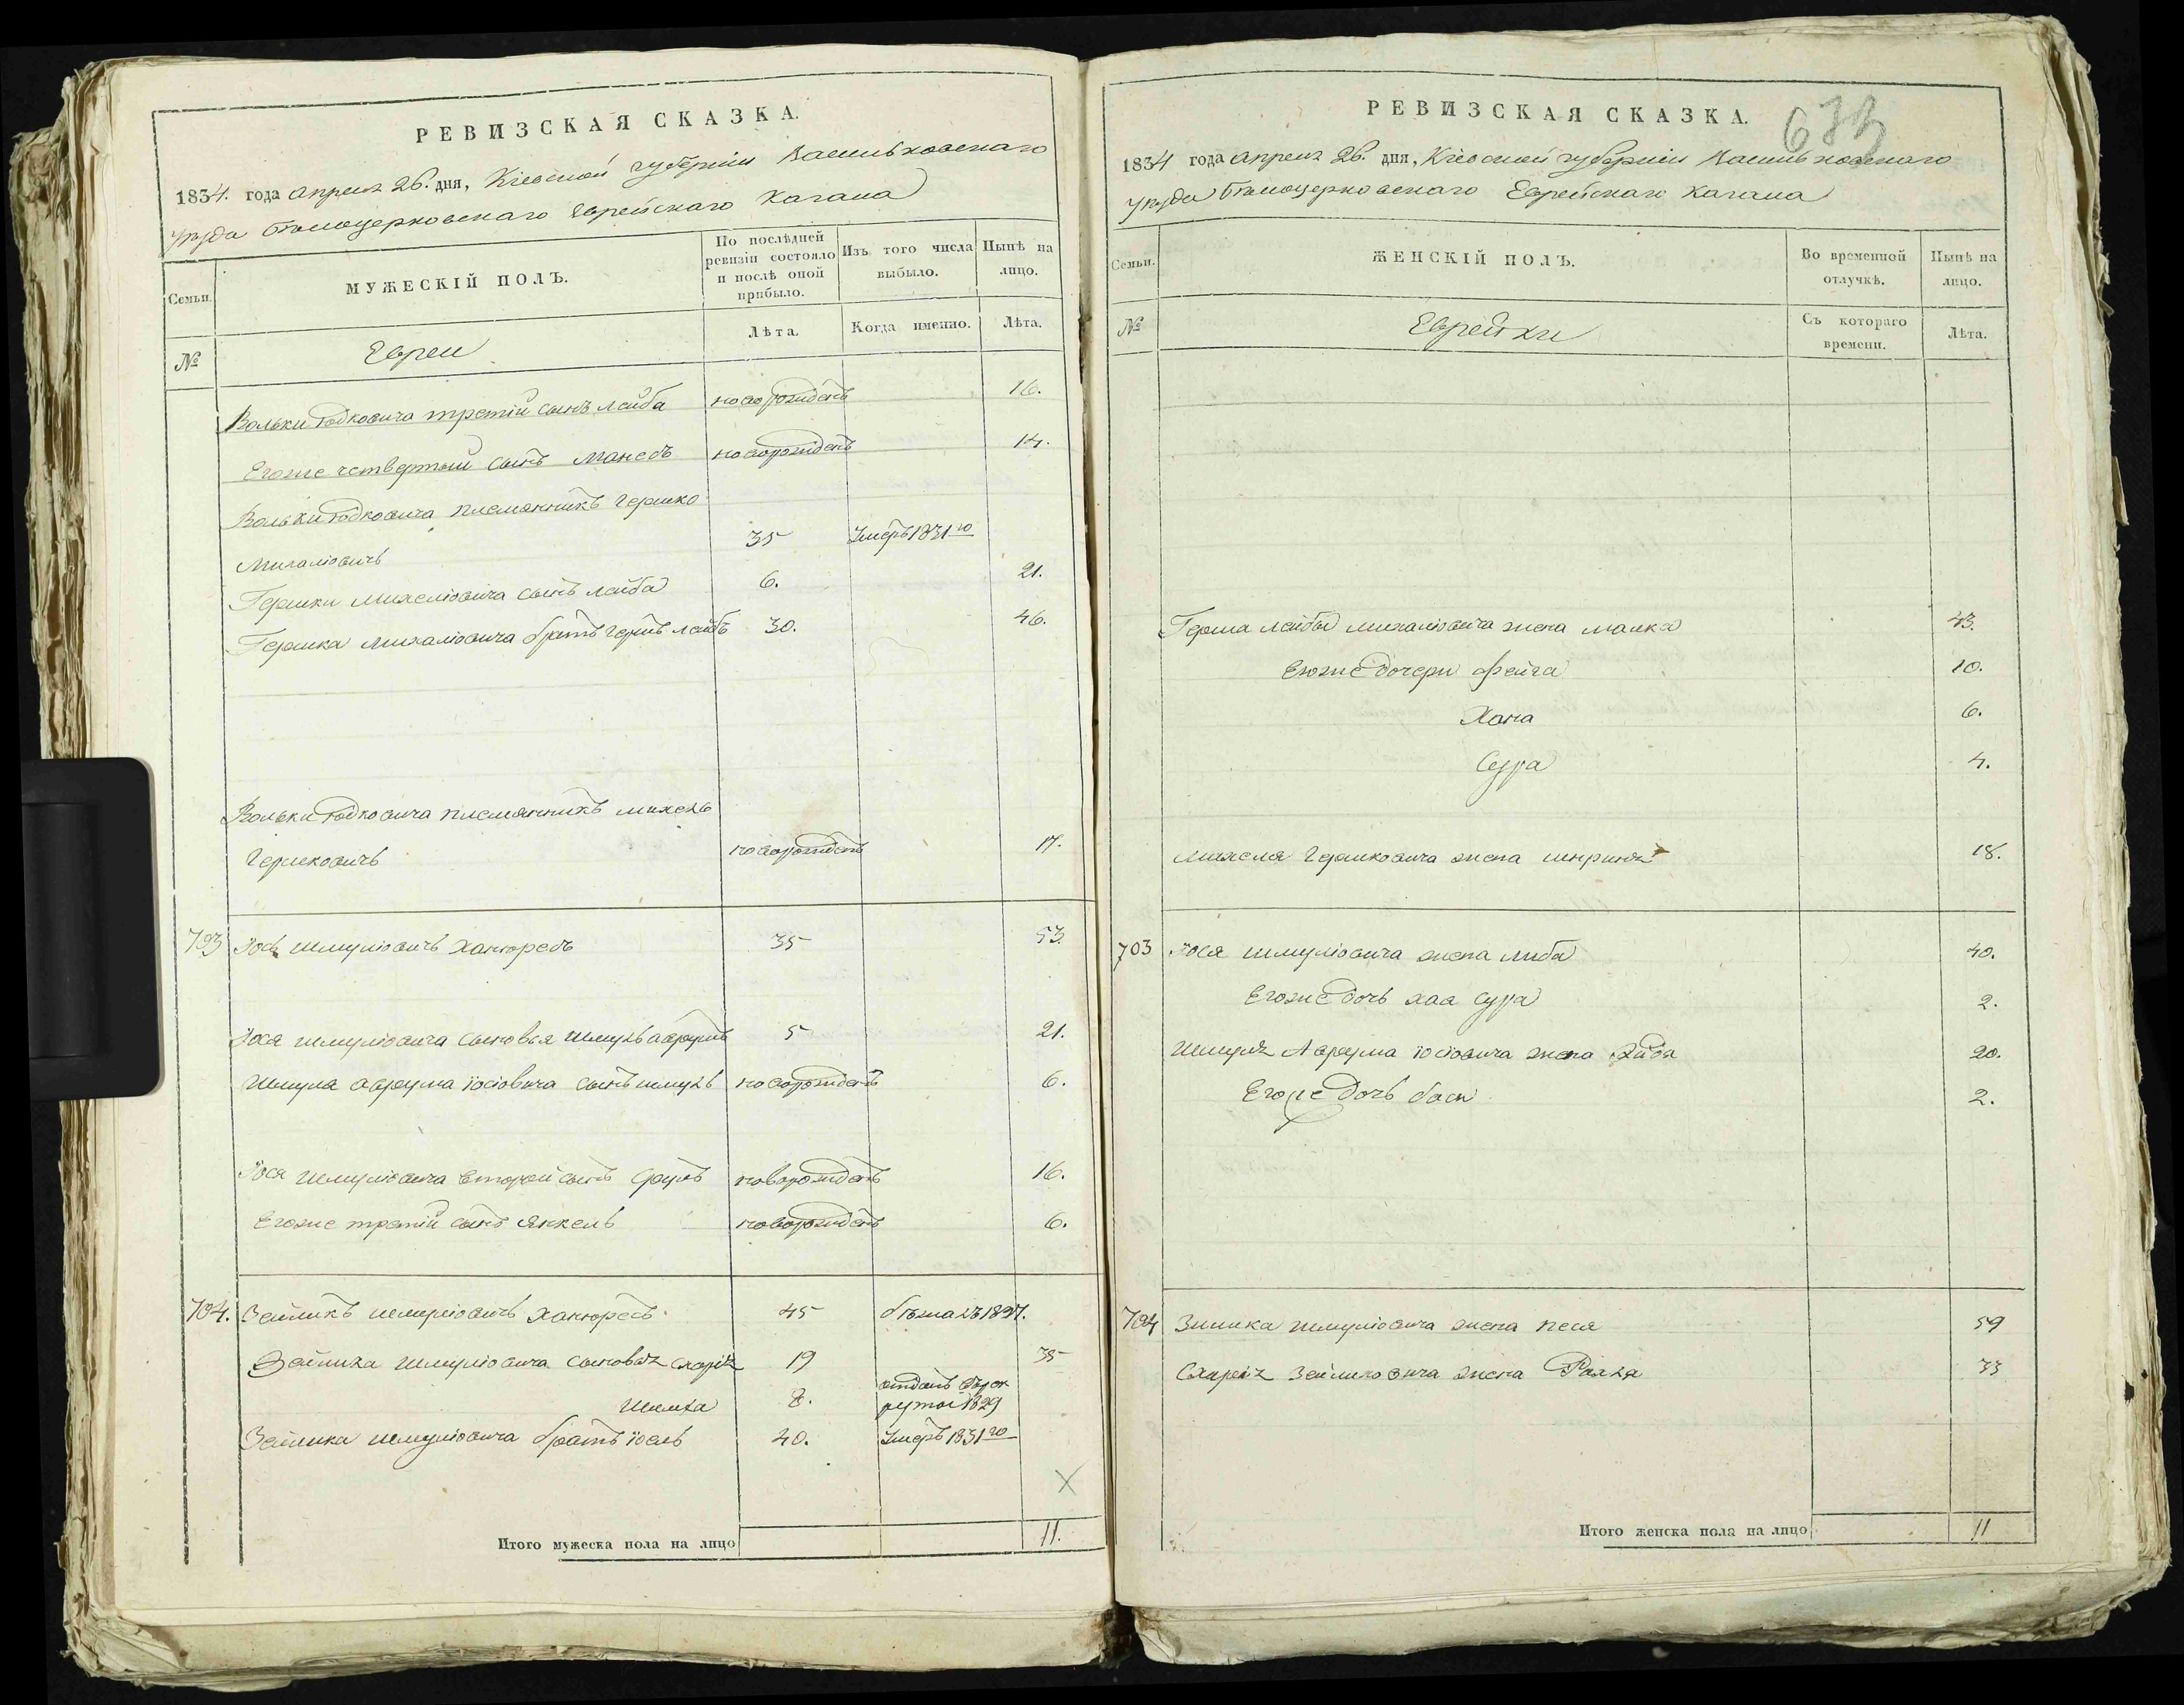 РЕВИЗСКАЯ СКАЗКА.
1834. года апреля 26. дня, Кіевской губерніи Васильковскаго
уезда Белоцерковскаго Еврейскаго Кагала
Семьи.
МУЖЕСКІЙ ПОЛЪ.
По послѣдней ревизіи состояло и послѣ оной прибыло.
Изъ того числа выбыло.
Нынѣ на лицо.
№
Евреи
Лѣта.
Когда именно.
Лѣта.
Вольки Юдковича третій сынъ Лейба новорожденъ 16.
Егоже четвертый сынъ Манесъ новорожденъ 14.
Вольки Юдковича племянникъ Гершко
Михаліовичъ 35 Умеръ 1831го
Гершки Михеліовича сынъ Лейба 6. 21.
Гершка Михаліовича братъ Гершъ Лейбъ 30. 46.
Вольки Юдковича племянникъ Михель
Гершковичъ новорожденъ 17.
703 Іось Шмуліовичъ Ханюресъ 35 53.
Іося Шмуліовича сыновья Шмуль Аврумъ 5 21.
Шмуля Аврума Іосіовича сынъ Шмуль новорожденъ 6.
Іося Шмуліовича второй сынъ Сруль новорожденъ 16.
Егоже третій сынъ Янкель новорожденъ 6.
704. Зейликъ Шмуліовичъ Ханюресъ 45 бежалъ 1827.
Зейлика Шмуліовича сыновья 19 35
8. отданъ въ рек
руты 1829
Зейлика Шмуліовича братъ Іоель 40. Умеръ 1831го
Итого мужеска пола на лицо 11.
РЕВИЗСКАЯ СКАЗКА.
633
1834 года апреля 26. дня, Кіевской губерніи Васильковскаго
уезда Белоцерковскаго Еврейскаго Кагала
Семьи.
ЖЕНСКІЙ ПОЛЪ.
Во временной отлучкѣ.
Нынѣ на лицо.
№
Еврейки
Съ котораго времени.
Лѣта.
Герша Лейбы Михаліовича жена Малка 43.
Егоже дочери Фейга 10.
Хана 6.
Сура 4.
Михеля Гершковича жена 18.
703 Іося Шмуліовича жена Либа 40.
Егоже дочь Хая Сура 2.
Шмуля Аврума Іосіовича жена 20.
Егоже дочь Бася 2.
704 Зилика Шмуліовича жена Песя 59
Зейликовича жена 33
Итого женска пола на лицо 11